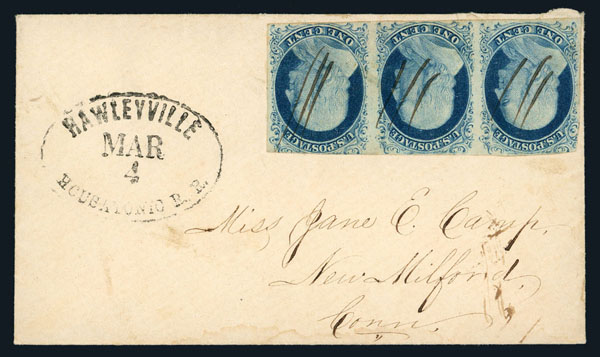 U.S. POSTAGE
ONE CENT
U.S. POSTAGE
ONE CENT
U.S. POSTAGE
ONE CENT
HAWLEYVILLE
MAR
4
HOUSATONIC R. R.
Miss, Jane E. Camp.
New Milford,
Conn.